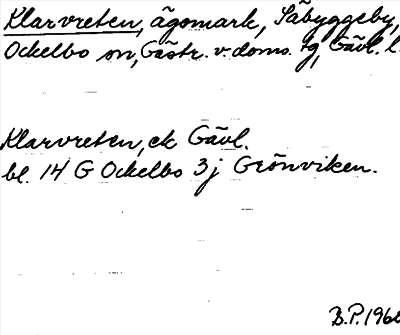 Klarvreten, ägomark, Säbyggeby,
Ockelbo sn, Gästr. v. doms. tg, Gävl. l.
Klarvreten, ek Gävl.
bl. 14 G Ockelbo 3j Grönviken.
B.P. 196